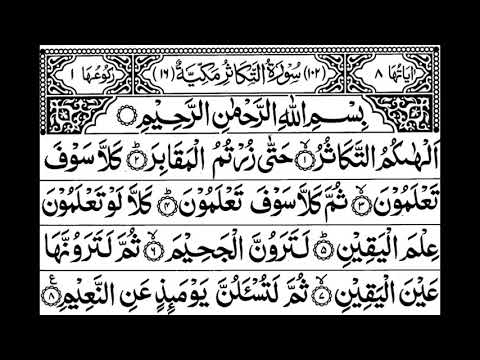 اٰیَاتُهَا ٨ (١٠٢) سُوْرَةُ التَّكَاثُرِ مَكِّيَّةٌ (١٦) رُكُوْعُهَا ١
بِسْمِ اللهِ الرَّحْمٰنِ الرَّحِيْمِ
اَلْهٰىكُمُ التَّكَاثُرُ ۙ‏﴿١﴾ حَتّٰى زُرْتُمُ الْمَقَابِرَ ؕ‏﴿٢﴾ كَلَّا سَوْفَ
تَعْلَمُوْنَ ۙ‏﴿٣﴾ ثُمَّ كَلَّا سَوْفَ تَعْلَمُوْنَ ؕ‏﴿٤﴾ كَلَّا لَوْ تَعْلَمُوْنَ
عِلْمَ الْيَقِيْنِ ؕ‏﴿٥﴾ لَتَرَوُنَّ الْجَحِيْمَ ۙ‏﴿٦﴾ ثُمَّ لَتَرَوُنَّهَا
عَيْنَ الْيَقِيْنِ ۙ‏﴿٧﴾ ثُمَّ لَتُسْئَلُنَّ يَوْمَئِذٍ عَنِ النَّعِيْمِ ‏﴿٨﴾ ع